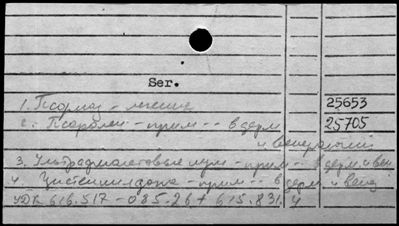 Ser.
1. Псориаз - лечение 25653
2. Псорален - прим -- в дерм 25705
и венерологии
3. Ультрафиолетовые лучи - прим -- в дерм. и вен
4. - прим -- в дерм. и вен
УДК 616.517-085.26+615.831.4